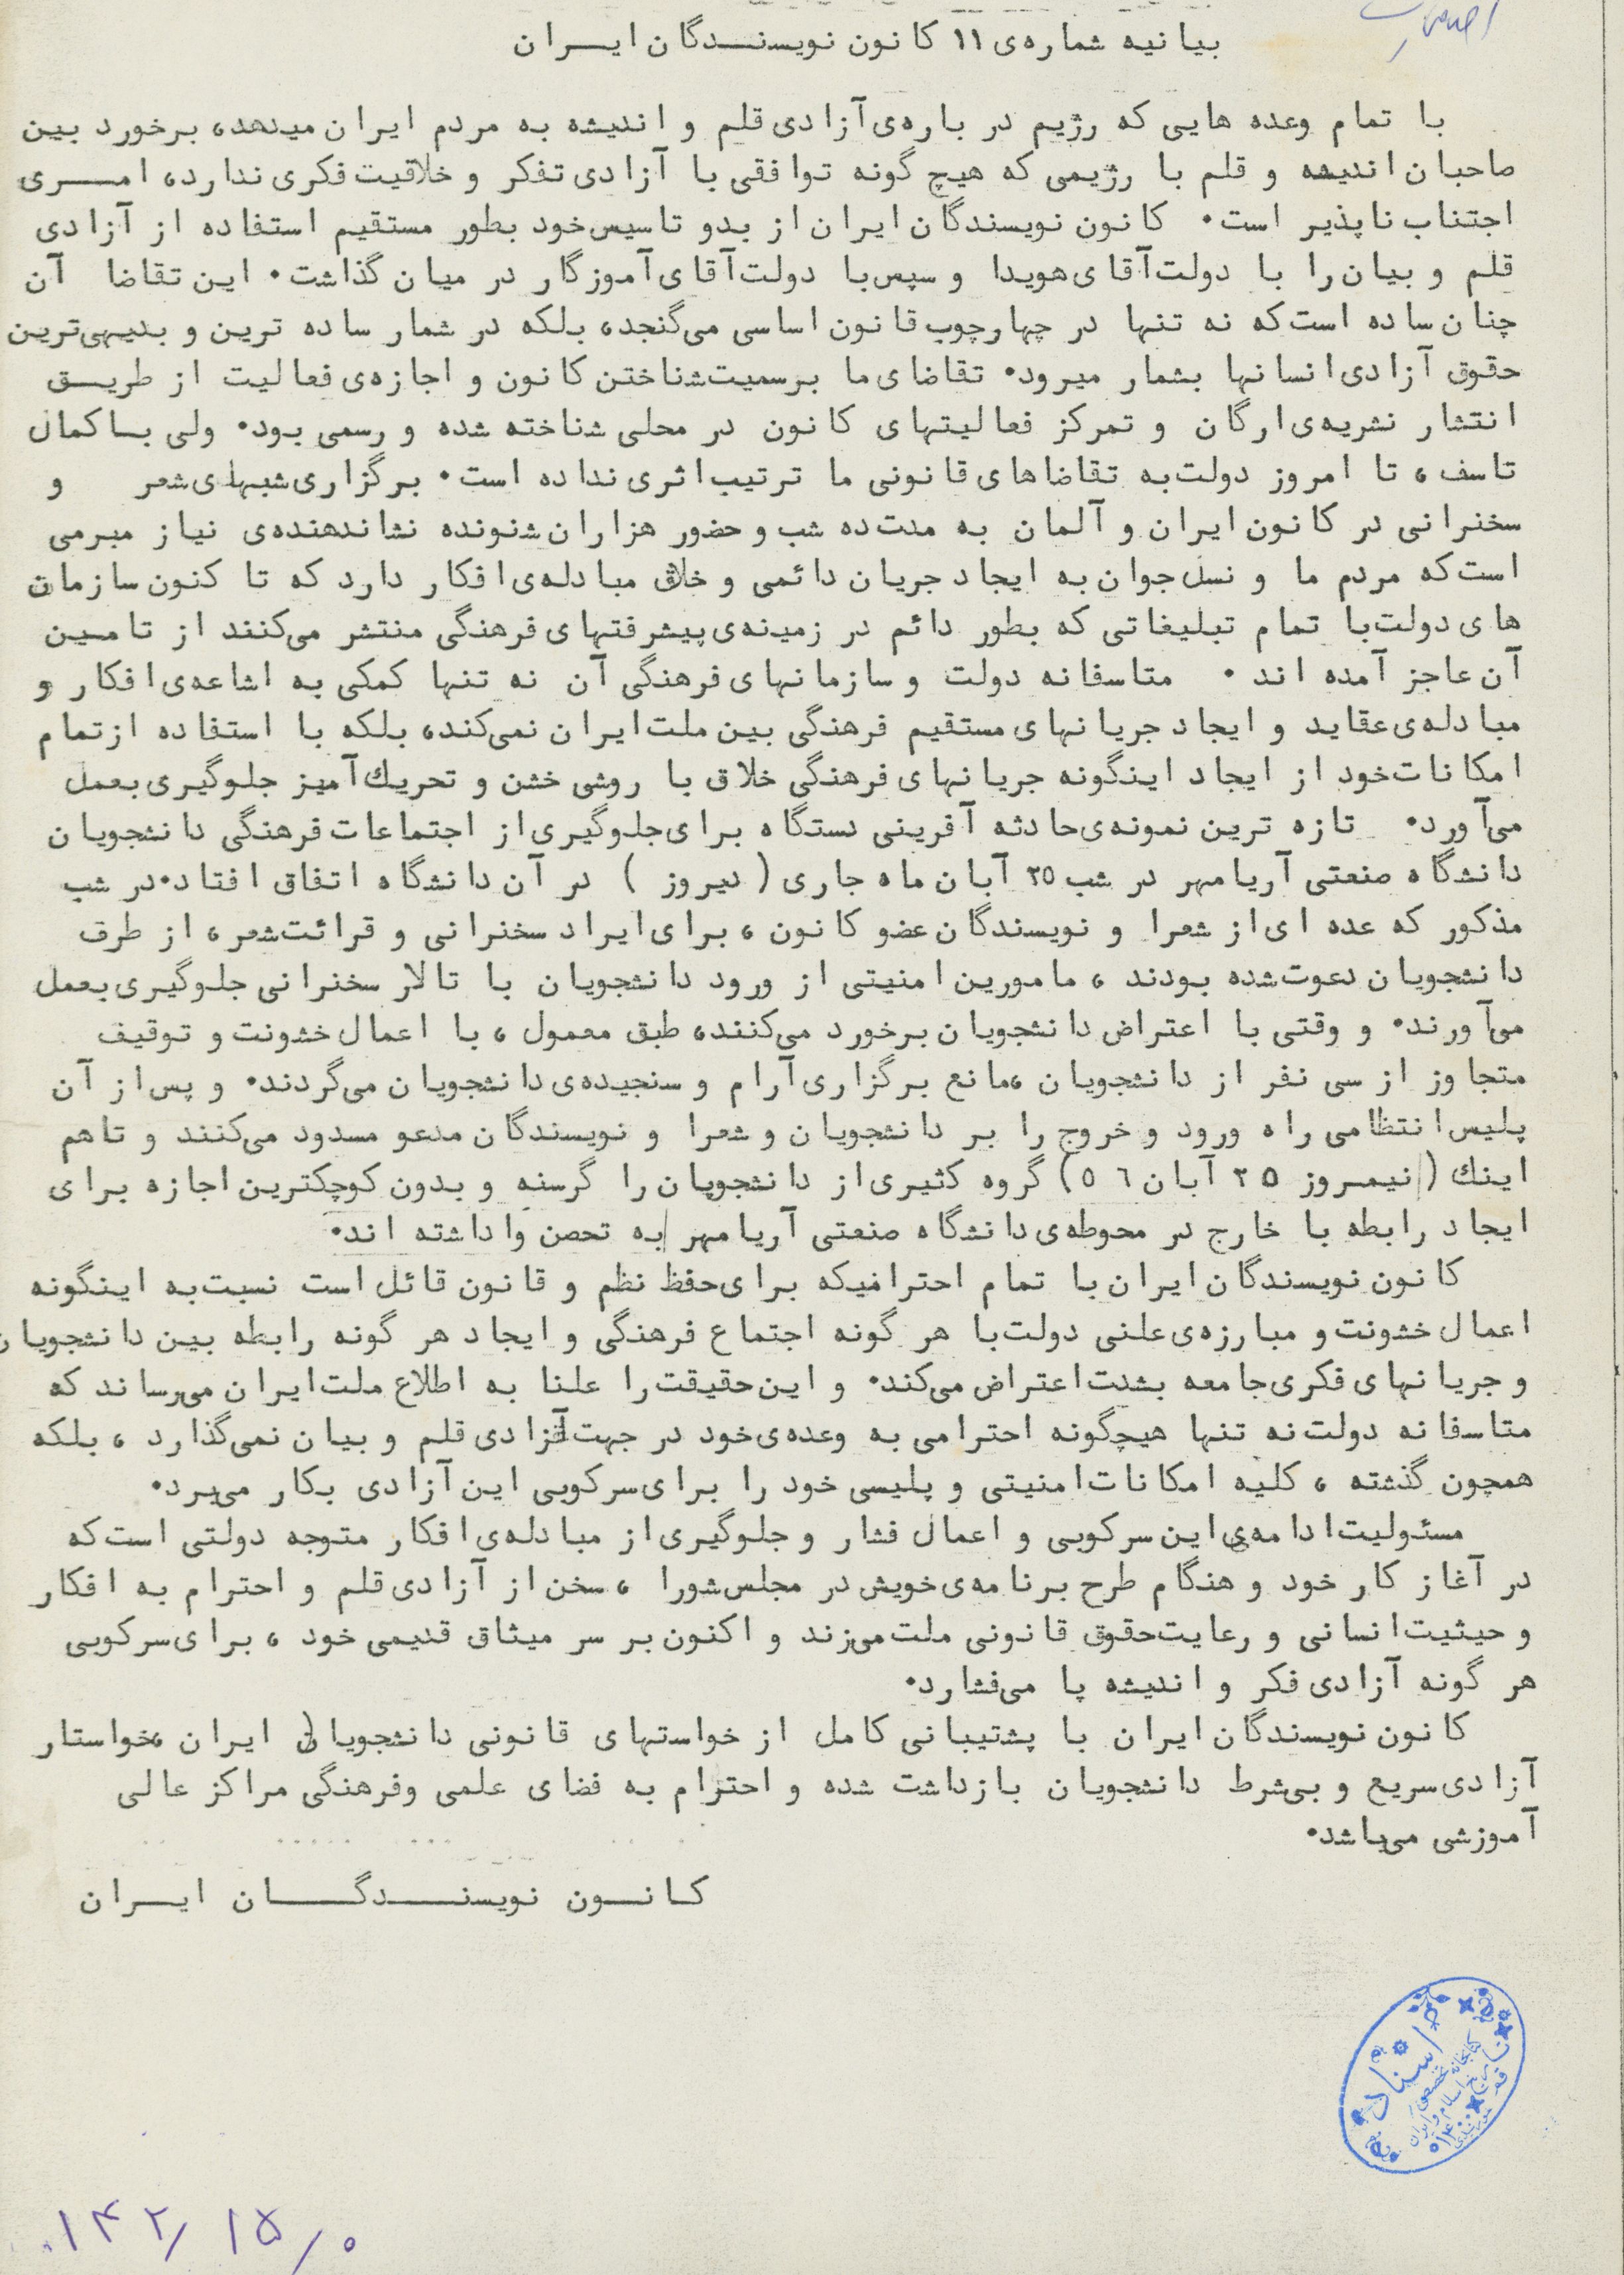 بیانیه شماره‌ی ۱۱ کانون نویسندگان ایران
با تمام وعده هایی که رژیم در باره‌ی آزادی قلم و اندیشه به مردم ایران میدهد، برخورد بین
صاحبان اندیشه و قلم با رژیمی که هیچ گونه توافقی با آزادی تفکر و خلاقیت فکری ندارد، امری
اجتناب ناپذیر است. کانون نویسندگان ایران از بدو تاسیس خود بطور مستقیم استفاده از آزادی
قلم و بیان را با دولت آقای هویدا و سپس با دولت آقای آموزگار در میان گذاشت. این تقاضا آن
چنان ساده است که نه تنها در چهارچوب قانون اساسی می‌گنجد، بلکه در شمار ساده ترین و بدیهی‌ترین
حقوق آزادی انسانها بشمار میرود. تقاضای ما برسمیت شناختن کانون و اجازه‌ی فعالیت از طریق
انتشار نشریه‌ی ارگان و تمرکز فعالیتهای کانون در محلی شناخته شده و رسمی بود. ولی با کمال
تاسف، تا امروز دولت به تقاضاهای قانونی ما ترتیب اثری نداده است. برگزاری شبهای شعر و
سخنرانی در کانون ایران و آلمان به مدت ده شب و حضور هزاران شنونده نشاندهنده‌ی نیاز مبرمی
است که مردم ما و نسل جوان به ایجاد جریان دائمی و خلاق مبادله‌ی افکار دارد که تا کنون سازمان
های دولت با تمام تبلیغاتی که بطور دائم در زمینه‌ی پیشرفتهای فرهنگی منتشر می‌کنند از تامین
آن عاجز آمده اند. متاسفانه دولت و سازمانهای فرهنگی آن نه تنها کمکی به اشاعه‌ی افکار و
مبادله‌ی عقاید و ایجاد جریانهای مستقیم فرهنگی بین ملت ایران نمی‌کند، بلکه با استفاده از تمام
امکانات خود از ایجاد اینگونه جریانهای فرهنگی خلاق با روشی خشن و تحریك آمیز جلوگیری بعمل
می‌آورد. تازه ترین نمونه‌ی حادثه آفرینی دستگاه برای جلوگیری از اجتماعات فرهنگی دانشجویان
دانشگاه صنعتی آریامهر در شب ۲۵ آبان ماه جاری (دیروز) در آن دانشگاه اتفاق افتاد. در شب
مذکور که عده ای از شعرا و نویسندگان عضو کانون، برای ایراد سخنرانی و قرائت شعر، از طرف
دانشجویان دعوت شده بودند، مامورین امنیتی از ورود دانشجویان با تالار سخنرانی جلوگیری بعمل
می‌آورند. و وقتی با اعتراض دانشجویان برخورد می‌کنند، طبق معمول، با اعمال خشونت و توقیف
متجاوز از سی نفر از دانشجویان، مانع برگزاری آرام و سنجیده‌ی دانشجویان می‌گردند. و پس از آن
پلیس انتظامی راه ورود و خروج را بر دانشجویان و شعرا و نویسندگان مدعو مسدود می‌کنند و تا هم
اینك (نیمروز ۲۵ آبان ۵٦) گروه کثیری از دانشجویان را گرسنه و بدون کوچکترین اجازه برای
ایجاد رابطه با خارج در محوطه‌ی دانشگاه صنعتی آریامهر به تحصن واداشته اند.
کانون نویسندگان ایران با تمام احترامیکه برای حفظ نظم و قانون قائل است نسبت به اینگونه
اعمال خشونت و مبارزه‌ی علنی دولت با هر گونه اجتماع فرهنگی و ایجاد هر گونه رابطه بین دانشجویان
و جریانهای فکری جامعه بشدت اعتراض می‌کند. و این حقیقت را علنا به اطلاع ملت ایران می‌رساند که
متاسفانه دولت نه تنها هیچگونه احترامی به وعده‌ی خود در جهت آزادی قلم و بیان نمی‌گذارد، بلکه
همچون گذشته، کلیه امکانات امنیتی و پلیسی خود را برای سرکوبی این آزادی بکار می‌برد.
مسئولیت ادامه‌ی این سرکوبی و اعمال فشار و جلوگیری از مبادله‌ی افکار متوجه دولتی است که
در آغاز کار خود و هنگام طرح برنامه‌ی خویش در مجلس شورا، سخن از آزادی قلم و احترام به افکار
و حیثیت انسانی و رعایت حقوق قانونی ملت می‌زند و اکنون بر سر میثاق قدیمی خود، برای سرکوبی
هر گونه آزادی فکر و اندیشه پا می‌فشارد.
کانون نویسندگان ایران با پشتیبانی کامل از خواستهای قانونی دانشجویان ایران، خواستار
آزادی سریع و بی‌شرط دانشجویان بازداشت شده و احترام به فضای علمی وفرهنگی مراکز عالی
آموزشی می‌باشد.
کانون نویسندگان ایران
اسناد
کتابخانه تخصصی
تاریخ اسلام و ایران
قم
۱۴۲/۱۵/۰